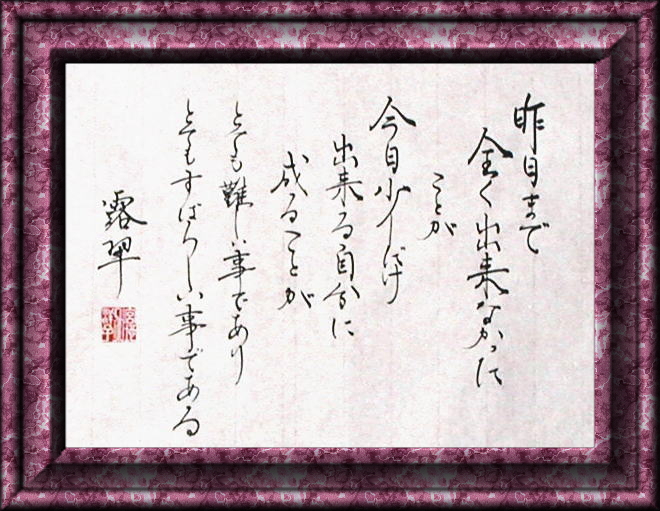 昨日まで
全く出来なかった
ことが
今日少しだけ
出来る自分に
成ることが
とても難しい事であり
とてもすばらしい事である
露翠